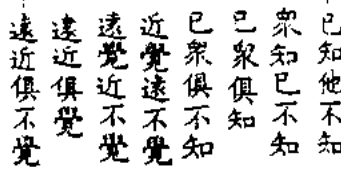 已知他不知
衆知已不知
已衆俱知
已衆俱不知
近覺遠不覺
遠覺近不覺
遠近俱覺
遠近俱不覺